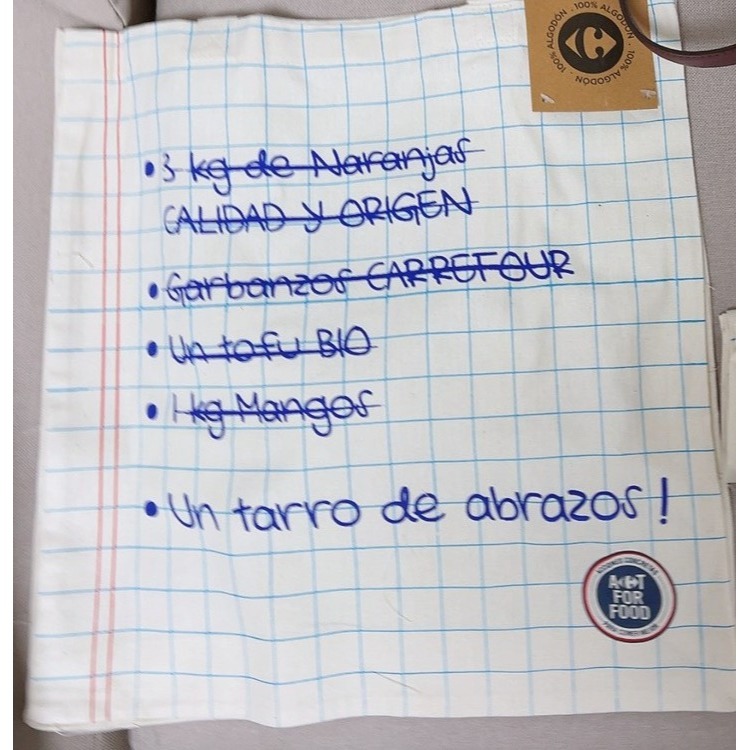 100% ALGODÓN · 100% ALGODÓN · 100% ALGODÓN ·
• 3 kg de Naranjas
CALIDAD Y ORIGEN
• Garbanzos CARREFOUR
• Un tofu BIO
• 1 kg Mangos
• Un tarro de abrazos!
ACT
FOR
FOOD